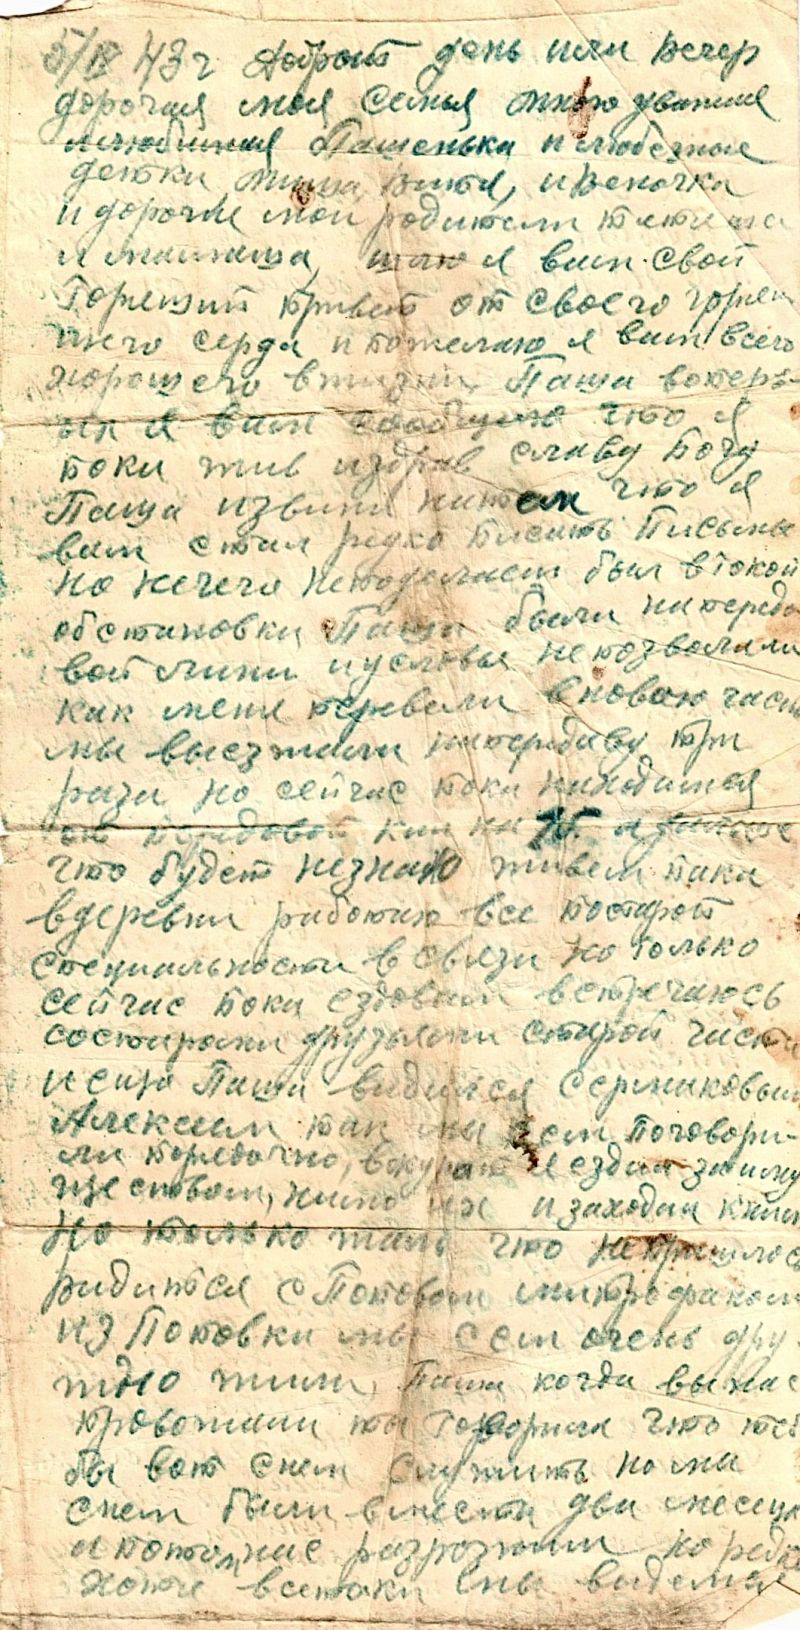 5/IV 43 г Добрый день или вечер
дорогая моя семья многоуважаемая
любимая Пашенька и любезные
детки Миша, Витя, и Веночка
и дорогие мои родители тятиша
и мамаша, шлю я вам свой
Горящий привет от своего горяч
щего серца и пожелаю я вам всего
хорошего в жизни. Паша вопервых
я вам сообщаю что я
пока жив издрав славу Богу
Паша извини что я
вам стал редко писать письма
но нечего неподелаеш был втокой
обстановки Паша были напередо
вой линии иусловья непозволяли
как меня перевели вновою часть
мы выезжали напередаву три
раза но сейчас пока находимся
от передовой км на 15 а
что будет незнаю живем пака
вдеревни работаю все постарой
специальности всвязи но только
сейчас пока ездовым встречаюсь
состарами друзьями старой части
и еще Паша видился сермаковым
Алексеем так мы с ем поговори-
ли порядочно, я ездил за
мимо их и заходил
Но только жаль что непришлось
видится с Поповым митрофаном
из Поповки мы с ем очень дру
жно жили, Паша когда вы нас
провожали ты говорила что теб
бы вот снем служить но мы
снем были вместе два месяца
и потом нас разрознили но редко
хотя всетаки мы виделися